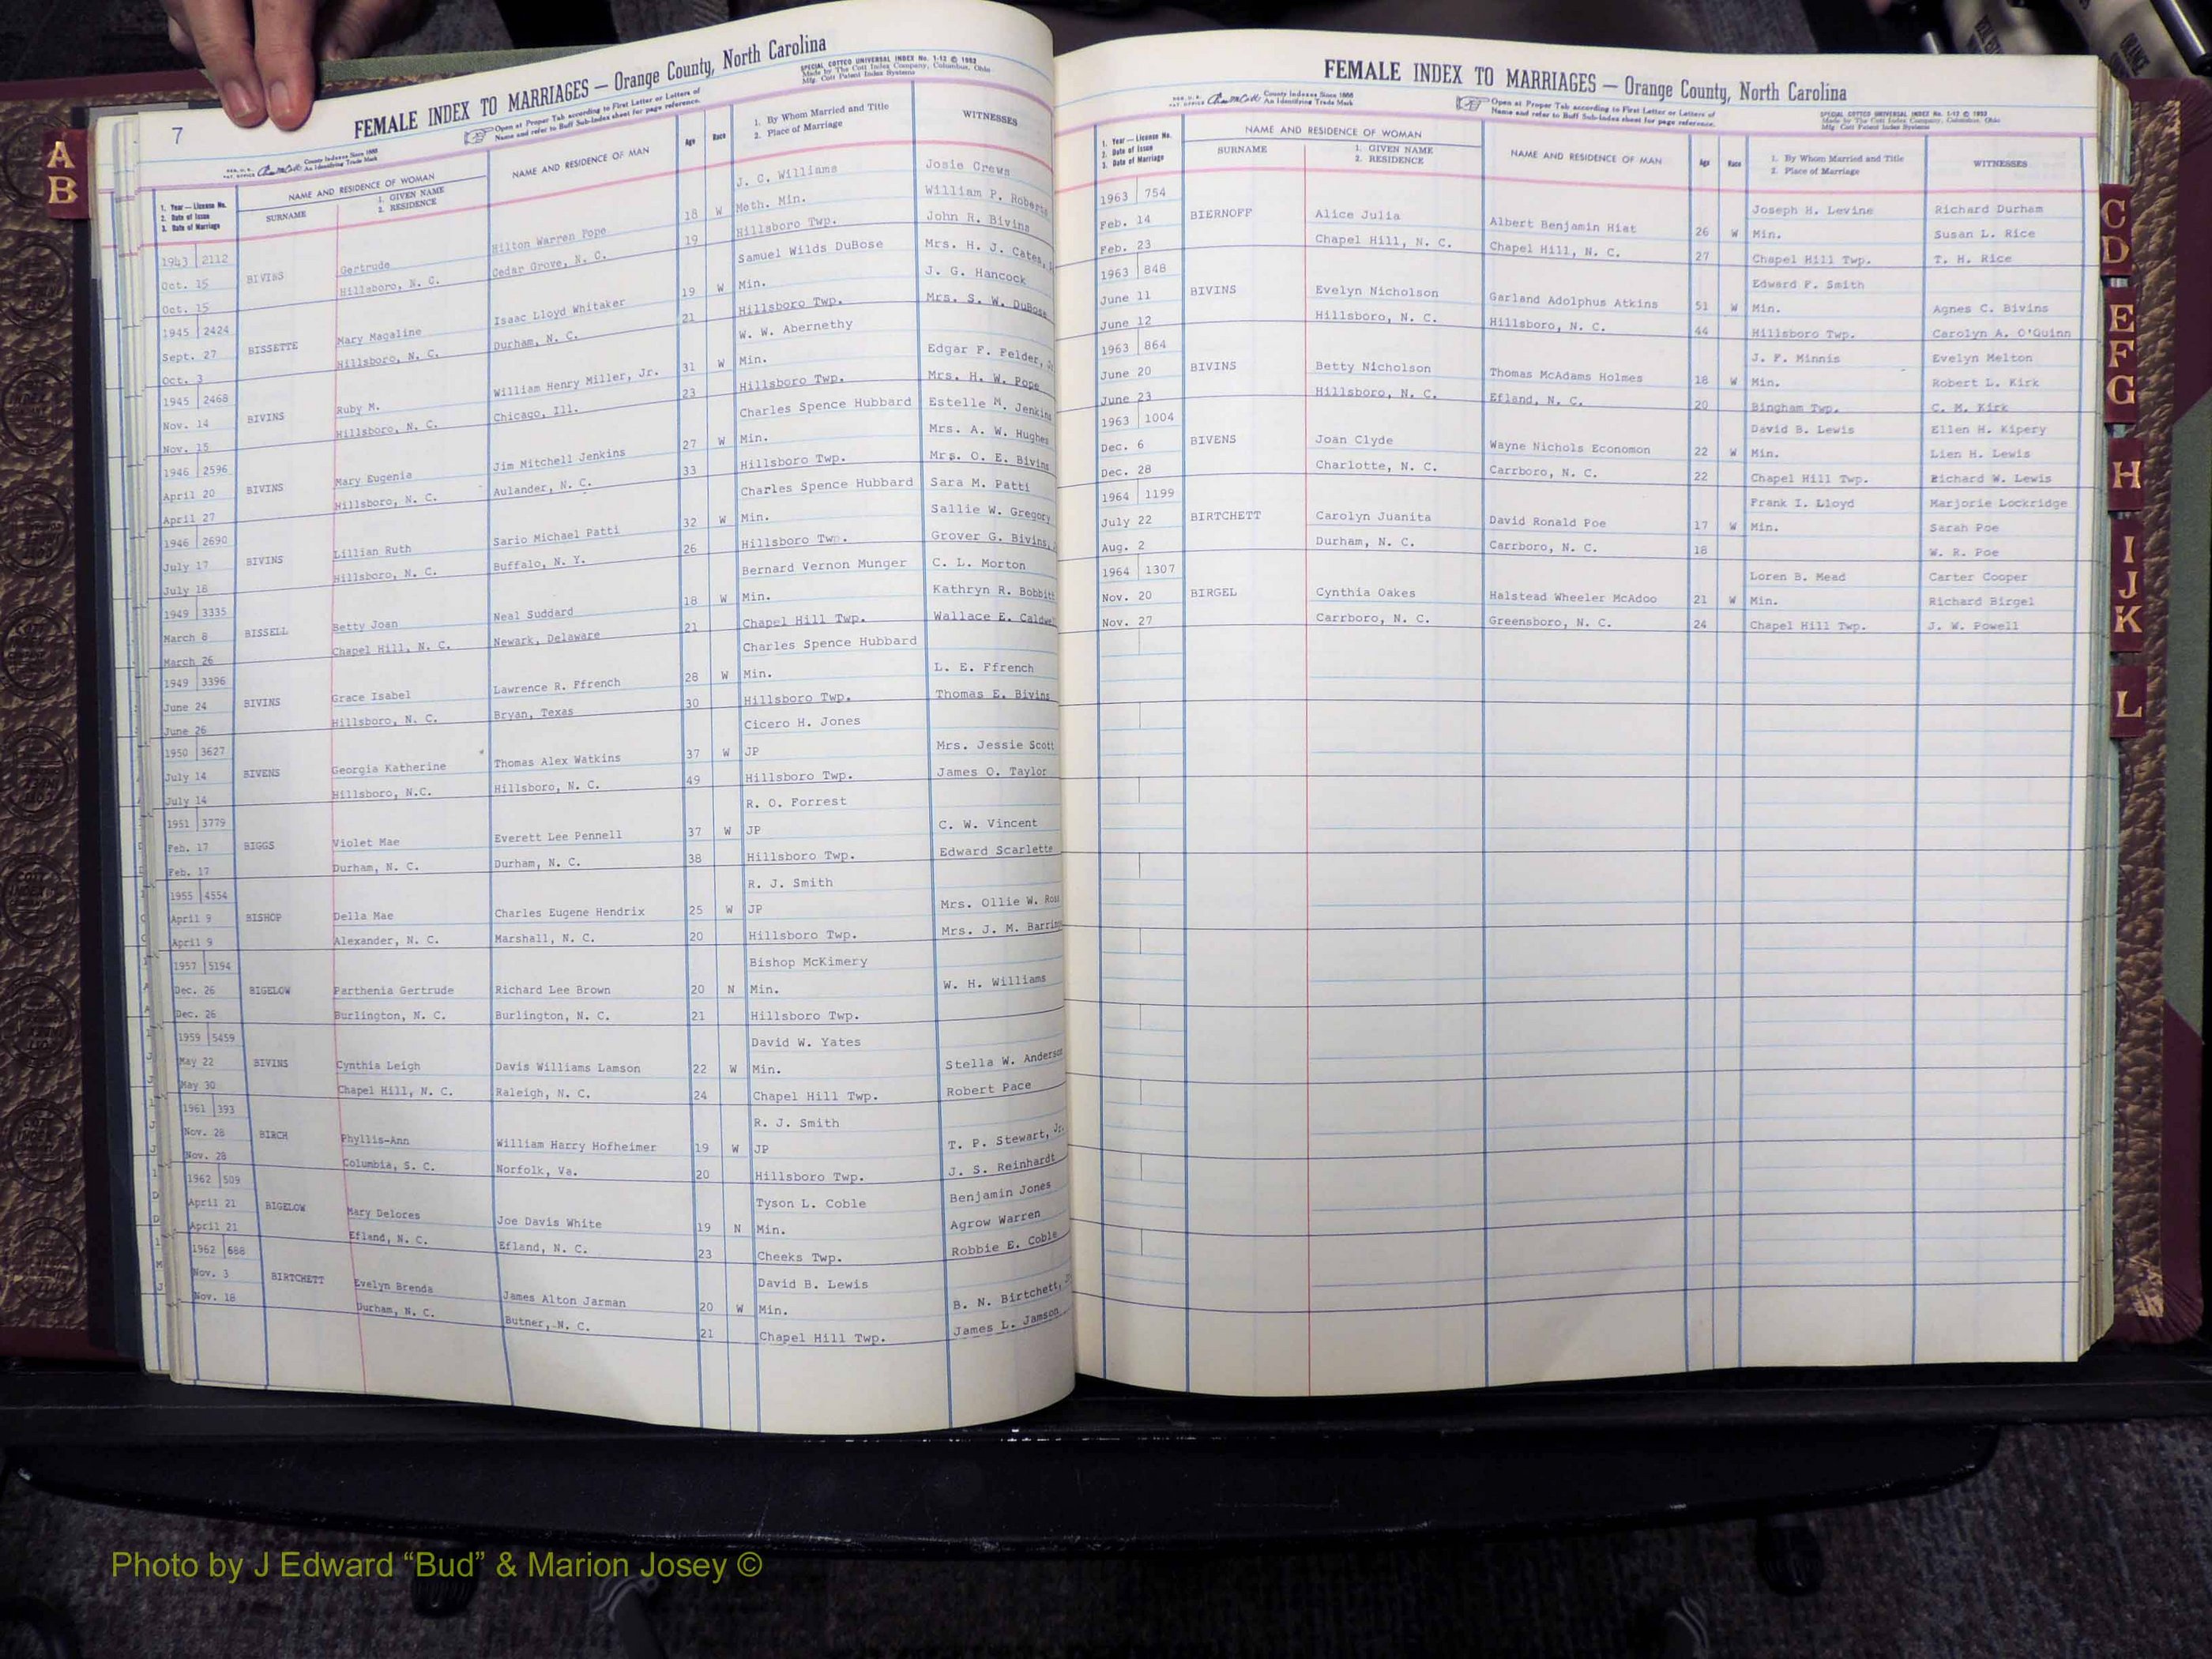 A
B
7
FEMALE INDEX TO MARRIAGES — Orange County, North Carolina
SPECIAL COTTCO UNIVERSAL INDEX No. 1-12 © 1953
Made by The Cott Index Company, Columbus, Ohio
Mfg. Cott Patent Index Systems
County Indexes Since 1888
An Identifying Trade Mark
Open at Proper Tab according to First Letter or Letters of
Name and refer to Buff Sub-Index sheet for page reference.
1. Year — License No.
2. Date of Issue
3. Date of Marriage
NAME AND RESIDENCE OF WOMAN
SURNAME
1. GIVEN NAME
2. RESIDENCE
NAME AND RESIDENCE OF MAN
Age
Race
1. By Whom Married and Title
2. Place of Marriage
WITNESSES
J. C. Williams Josie Crews
1943 2112 Gertrude Hilton Warren Pope 18 W Meth. Min. William P. Roberts
Oct. 15 BIVINS Hillsboro, N. C. Cedar Grove, N. C. 19 Hillsboro Twp. John R. Bivins
Oct. 15 Samuel Wilds DuBose Mrs. H. J. Cates,
1945 2424 Mary Magaline Isaac Lloyd Whitaker 19 W Min. J. G. Hancock
Sept. 27 BISSETTE Hillsboro, N. C. Durham, N. C. 21 Hillsboro Twp. Mrs. S. W. DuBose
Oct. 3 W. W. Abernethy
1945 2468 Ruby M. William Henry Miller, Jr. 31 W Min. Edgar F. Felder,
Nov. 14 BIVINS Hillsboro, N. C. Chicago, Ill. 23 Hillsboro Twp. Mrs. H. W. Pope
Nov. 15 Charles Spence Hubbard Estelle M. Jenkins
1946 2596 Mary Eugenia Jim Mitchell Jenkins 27 W Min. Mrs. A. W. Hughes
April 20 BIVINS Hillsboro, N. C. Aulander, N. C. 33 Hillsboro Twp. Mrs. O. E. Bivins
April 27 Charles Spence Hubbard Sara M. Patti
1946 2690 Lillian Ruth Sario Michael Patti 32 W Min. Sallie W. Gregory
July 17 BIVINS Hillsboro, N. C. Buffalo, N. Y. 26 Hillsboro Twp. Grover G. Bivins,
July 18 Bernard Vernon Munger C. L. Morton
1949 3335 Betty Joan Neal Suddard 18 W Min. Kathryn R. Bobbitt
March 8 BISSELL Chapel Hill, N. C. Newark, Delaware 21 Chapel Hill Twp. Wallace E. Caldwel
March 26 Charles Spence Hubbard
1949 3396 Grace Isabel Lawrence R. Ffrench 28 W Min. L. E. Ffrench
June 24 BIVINS Hillsboro, N. C. Bryan, Texas 30 Hillsboro Twp. Thomas E. Bivins
June 26 Cicero H. Jones
1950 3627 Georgia Katherine Thomas Alex Watkins 37 W JP Mrs. Jessie Scott
July 14 BIVENS Hillsboro, N.C. Hillsboro, N. C. 49 Hillsboro Twp. James O. Taylor
July 14 R. O. Forrest
1951 3779 Violet Mae Everett Lee Pennell 37 W JP C. W. Vincent
Feb. 17 BIGGS Durham, N. C. Durham, N. C. 38 Hillsboro Twp. Edward Scarlette
Feb. 17 R. J. Smith
1955 4554 Della Mae Charles Eugene Hendrix 25 W JP Mrs. Ollie W. Ross
April 9 BISHOP Alexander, N. C. Marshall, N. C. 20 Hillsboro Twp. Mrs. J. M. Barring
April 9
1957 5194 Bishop McKimery
Dec. 26 BIGELOW Parthenia Gertrude Richard Lee Brown 20 N Min. W. H. Williams
Dec. 26 Burlington, N. C. Burlington, N. C. 21 Hillsboro Twp.
1959 5459 David W. Yates
May 22 BIVINS Cynthia Leigh Davis Williams Lamson 22 W Min. Stella W. Anderson
May 30 Chapel Hill, N. C. Raleigh, N. C. 24 Chapel Hill Twp. Robert Pace
1961 393 R. J. Smith
Nov. 28 BIRCH Phyllis-Ann William Harry Hofheimer 19 W JP T. P. Stewart, Jr.
Nov. 28 Columbia, S. C. Norfolk, Va. 20 Hillsboro Twp. J. S. Reinhardt
1962 509 Tyson L. Coble Benjamin Jones
April 21 BIGELOW Mary Delores Joe Davis White 19 N Min. Agrow Warren
April 21 Efland, N. C. Efland, N. C. 23 Cheeks Twp. Robbie E. Coble
1962 688 David B. Lewis
Nov. 3 BIRTCHETT Evelyn Brenda James Alton Jarman 20 W Min. B. N. Birtchett,
Nov. 18 Durham, N. C. Butner, N. C. 21 Chapel Hill Twp. James L. Jamson
FEMALE INDEX TO MARRIAGES — Orange County, North Carolina
County Indexes Since 1888
An Identifying Trade Mark
Open at Proper Tab according to First Letter or Letters of
Name and refer to Buff Sub-Index sheet for page reference.
SPECIAL COTTCO UNIVERSAL INDEX No. 1-12 © 1953
Made by The Cott Index Company, Columbus, Ohio
Mfg. Cott Patent Index Systems
1. Year — License No.
2. Date of Issue
3. Date of Marriage
NAME AND RESIDENCE OF WOMAN
SURNAME
1. GIVEN NAME
2. RESIDENCE
NAME AND RESIDENCE OF MAN
Age
Race
1. By Whom Married and Title
2. Place of Marriage
WITNESSES
1963 754 Joseph H. Levine Richard Durham
Feb. 14 BIERNOFF Alice Julia Albert Benjamin Hiat 26 W Min. Susan L. Rice
Feb. 23 Chapel Hill, N. C. Chapel Hill, N. C. 27 Chapel Hill Twp. T. H. Rice
1963 848 Edward F. Smith
June 11 BIVINS Evelyn Nicholson Garland Adolphus Atkins 51 W Min. Agnes C. Bivins
June 12 Hillsboro, N. C. Hillsboro, N. C. 44 Hillsboro Twp. Carolyn A. O'Quinn
1963 864 J. F. Minnis Evelyn Melton
June 20 BIVINS Betty Nicholson Thomas McAdams Holmes 18 W Min. Robert L. Kirk
June 23 Hillsboro, N. C. Efland, N. C. 20 Bingham Twp. C. M. Kirk
1963 1004 David B. Lewis Ellen H. Kipery
Dec. 6 BIVENS Joan Clyde Wayne Nichols Economon 22 W Min. Lien H. Lewis
Dec. 28 Charlotte, N. C. Carrboro, N. C. 22 Chapel Hill Twp. Richard W. Lewis
1964 1199 Frank I. Lloyd Marjorie Lockridge
July 22 BIRTCHETT Carolyn Juanita David Ronald Poe 17 W Min. Sarah Poe
Aug. 2 Durham, N. C. Carrboro, N. C. 18 W. R. Poe
1964 1307 Loren B. Mead Carter Cooper
Nov. 20 BIRGEL Cynthia Oakes Halstead Wheeler McAdoo 21 W Min. Richard Birgel
Nov. 27 Carrboro, N. C. Greensboro, N. C. 24 Chapel Hill Twp. J. W. Powell
C
D
E
F
G
H
I
J
K
L
Photo by J Edward “Bud” & Marion Josey ©